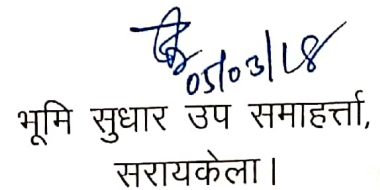 05/03/18
भूमि सुधार उप समाहर्त्ता,
सरायकेला।